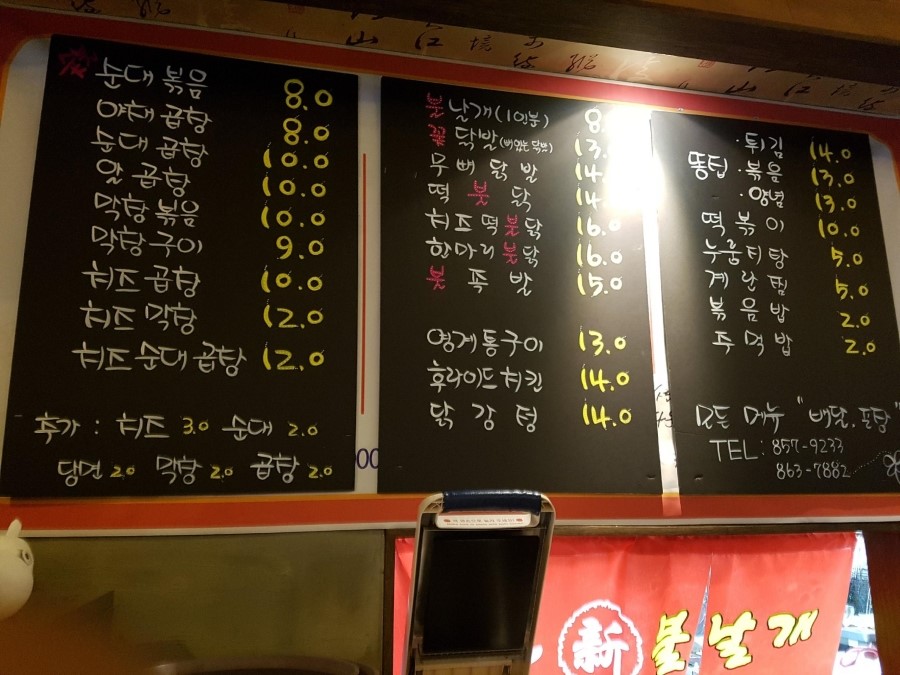 순대 볶음 8.0
야채 곱창 8.0
순대 곱창 10.0
알 곱창 10.0
막창 볶음 10.0
막창 구이 9.0
치즈 곱창 10.0
치즈 막창 12.0
치즈 순대 곱창 12.0
추가 : 치즈 3.0 순대 2.0
당면 2.0 막창 2.0 곱창 2.0
불 날개 (1인분) 8.
꽃 닭발 13.
무뼈 닭발 14.
떡 불 닭 14.
치즈 떡 불 닭 16.0
한마리 불 닭 16.0
불 족 발 15.0
영계통구이 13.0
후라이드 치킨 14.0
닭 강 정 14.0
똥집
· 튀김 14.0
· 볶음 13.0
· 양념 13.0
떡 볶 이 10.0
누룽지탕 5.0
계 란 찜 5.0
볶 음 밥 2.0
주 먹 밥 2.0
모든 메뉴 "배달, 포장"
TEL : 857-9233
863-7882
新 불날개